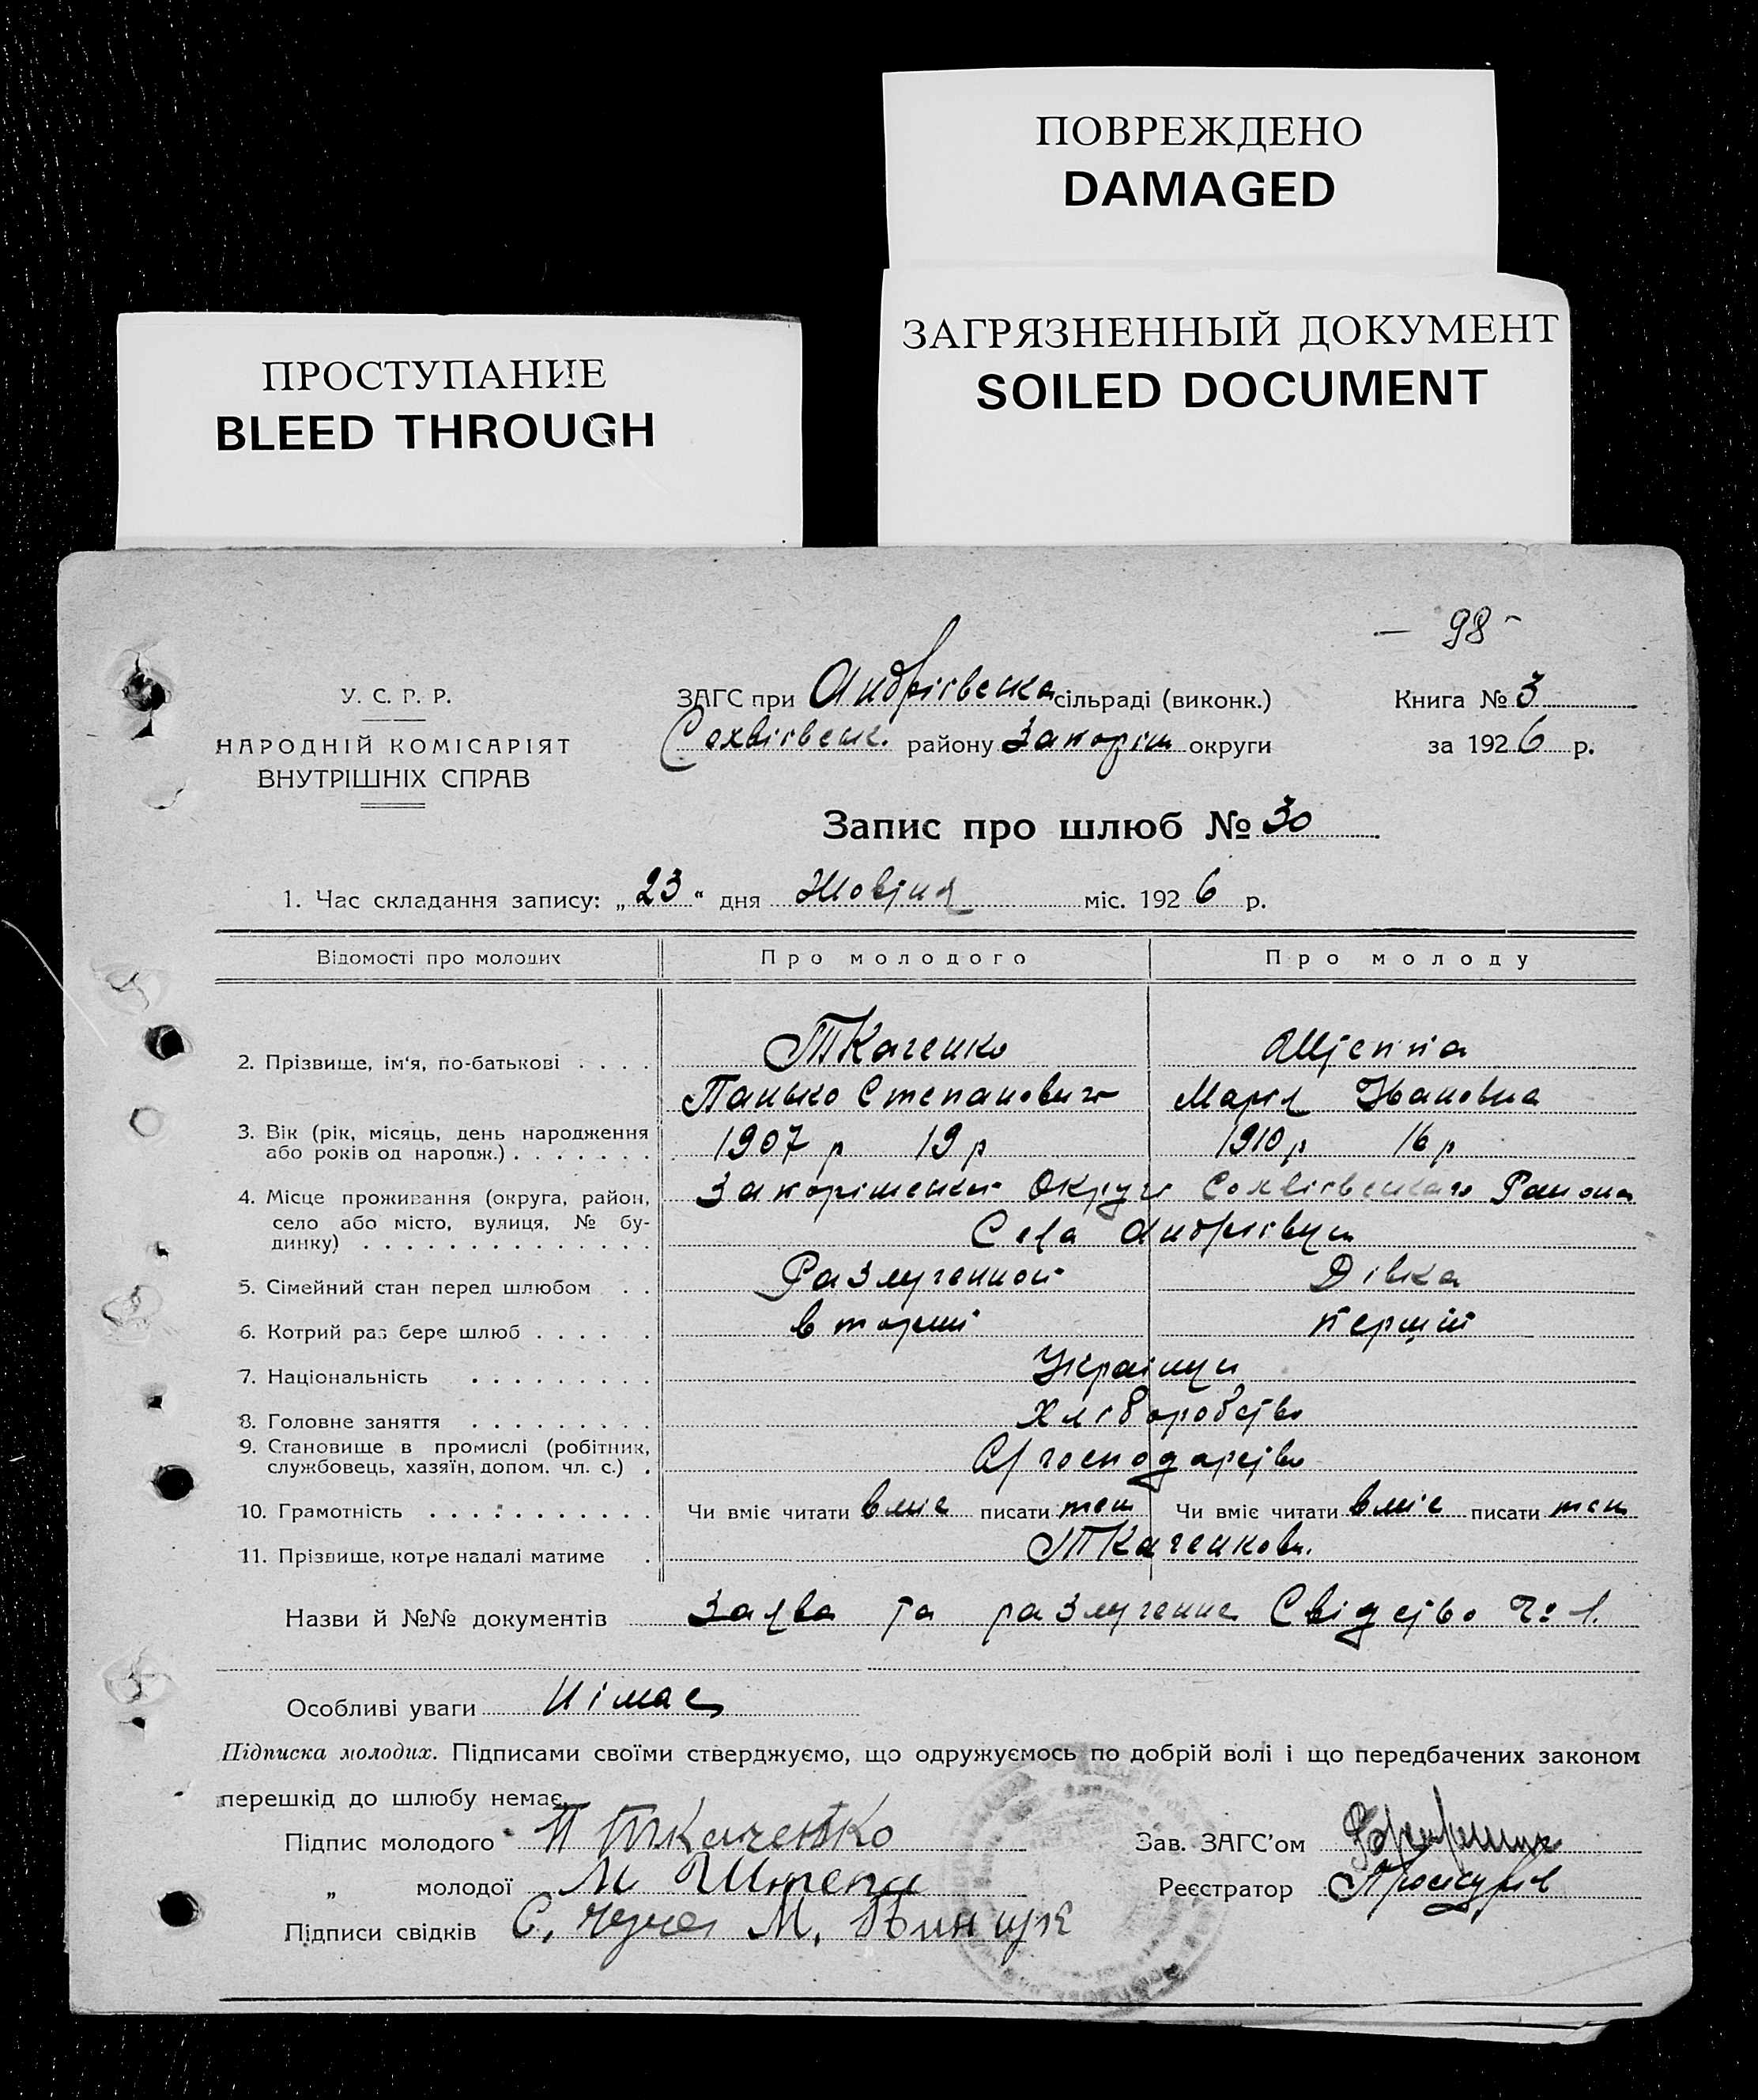 ПОВРЕЖДЕНО
DAMAGED
ЗАГРЯЗНЕННЫЙ ДОКУМЕНТ
SOILED DOCUMENT
ПРОСТУПАНИЕ
BLEED THROUGH
— 98 -
У. С. Р. Р.
НАРОДНІЙ КОМІСАРІЯТ
ВНУТРІШНІХ СПРАВ
ЗАГС при Андрієвска сільраді (виконк.)
району Запоріж округи
Книга № 3
за 1926 р.
Запис про шлюб № 30
1. Час складання запису: „23" дня Жовтня міс. 1926 р.
Відомості про молодих
Про молодого
Про молоду
2. Прізвище, ім'я, по-батькові . . . .
Ткаченко
Панько Степанович
Штеппа
Марія Івановна
3. Вік (рік, місяць, день народження
або років од народж.) . . . . . . .
1907 р 19 р
1910 р 16 р
4. Місце проживання (округа, район,
село або місто, вулиця, № бу-
динку) . . . . . . . . . . . . . .
Округи Района
Села Андрієвци
5. Сімейний стан перед шлюбом . .
Разлученной
Дівка
6. Котрий раз бере шлюб . . . . .
вторий
перший
7. Національність . . . . . . . . .
Українци
8. Головне заняття . . . . . . . . .
Хліборобство
9. Становище в промислі (робітник,
службовець, хазяїн, допом. чл. с.) .
С/господарство
10. Грамотність . . . . . . . . . . .
Чи вміє читати вміє писати теж
Чи вміє читати вміє писати теж
11. Прізвище, котре надалі матиме .
Ткаченкови.
Назви й №№ документів Заява та разлучение Свідоство № 1.
Особливі уваги Німає
Підписка молодих. Підписами своїми стверджуємо, що одружуємось по добрій волі і що передбачених законом
перешкід до шлюбу немає.
Підпис молодого П Ткаченко
„ молодої М Штепа
Підписи свідків С. М.
Зав. ЗАГС'ом
Реєстратор